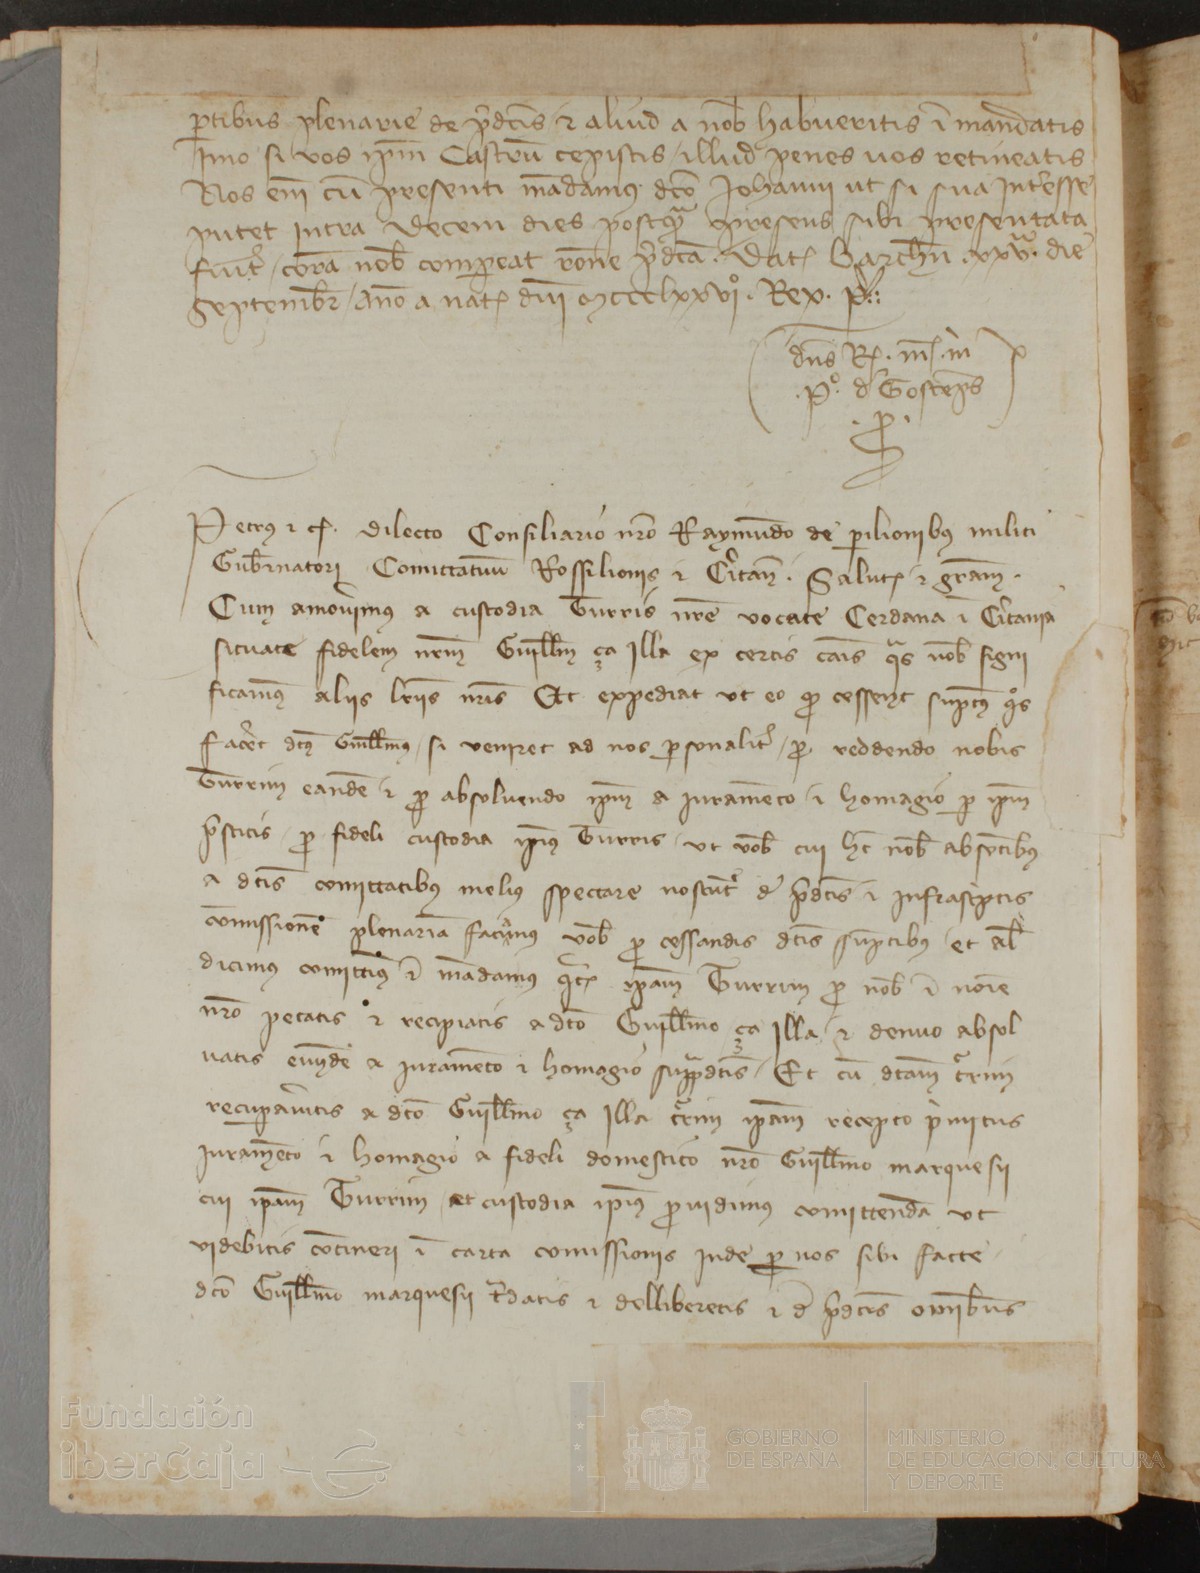 ptibus plenarie de p̃dcis ⁊ aliud a nob̃ habueritis ĩ mandatis
Imo si vos ip̃m Castrũ cepistis / illud penes uos retineatis
Nos em̃ cũ presenti mãdamus dc̃o Johanni ut si sua Int̃esse
putet intra decem dies postq̃ presens sibi presentata
fũit / corã nob̃ compareat rõne p̃dcã . Dat̃ Barchñ . xxv . die
Septembr̃ / Año a nat̃ dñi mccclxxvi° . Rex . P.
dñs R̃ . m̃ . m̃
. P°. d̃ Gostẽps
. p̃ .
Petrus ⁊ c̃ . dilecto Consiliario nr̃o Raymũdo de perilionibus militi
Gub̃natori Comittatuũ Rossilionis ⁊ C̃itañ . Salut̃ ⁊ gr̃am .
Cum amoverimus a custodia Turris nr̃e vocate Cerdana ĩ C̃itania
situate fidelem nr̃m Guill̃m ça Illa ex certis cãis q̃s nob̃ signi
ficamus aliis lr̃iis nr̃is Et expediat ut eo p̃ cessent sũptus q̃s
fac̃et dc̃us Guill̃mus / si veniret ad nos p̃sonalit̃ / p̃ reddendo nobis
Turrim eandẽ ⁊ p̃ absoluendo ip̃m a Iuramẽto ⁊ homagio p̃ ip̃m
p̃sticis p̃ fideli custodia ip̃ius Turris / ut vob̃ cui hc̃ nob̃ absẽtibus
a dc̃is comittatibus melius spectare noscũt̃ d̃ p̃dcis ⁊ infrascriptis
cõmissionẽ plenariã facimus vob̃ p̃ cessandis dc̃is sũptibus / et al̃
dicimus comittimus ⁊ mãdamus q̃t̃ ip̃am Turrim p̃ nob̃ ⁊ noĩe
nr̃o petatis ⁊ recipiatis a dc̃o Guill̃mo ça Illa ⁊ denuo absol
uatis eundẽ a Iuramẽto ⁊ homagio sup̃dc̃is / Et cũ dc̃am t̃rim
recuperaveritis a dc̃o Guill̃mo ça Illa t̃rim ip̃am recepto p̃mitus
Iuramẽto ⁊ homagio a fideli domestico nr̃o Guill̃mo marquesii
cui ip̃am Turrim / et custodia ip̃ius p̃uidimus comittendã ut
videbitis cõtineri ĩ carta comissionis inde p̃ nos sibi facte
dc̃o Guill̃mo marquesii t̃datis ⁊ delliberetis ⁊ d̃ p̃dc̃is omnibus
Fundación
iberCaja
GOBIERNO
DE ESPAÑA
MINISTERIO
DE EDUCACIÓN, CULTURA
Y DEPORTE